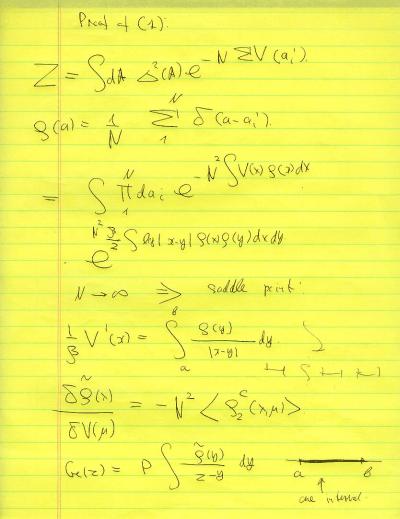 Proof of (1):
Z = ∫dA Δ²(A) e^{-N ΣV(a_i)}.
ρ(a) = 1/N Σ_1^N δ(a-a_i).
= ∫ Π_1^N da_i e^{-N² ∫V(x) ρ(x)dx}
e^{N² β/2 ∫ log|x-y| ρ(x)ρ(y)dxdy}
N → ∞ ⇒ saddle point:
1/β V'(x) = ∫_a^b ρ(y)/|x-y| dy
δρ̃(x)/δV(μ) = -N² < ρ_2^c (x,μ) >
G(z) = P ∫ ρ̃(y)/(z-y) dy
a b
one interval.